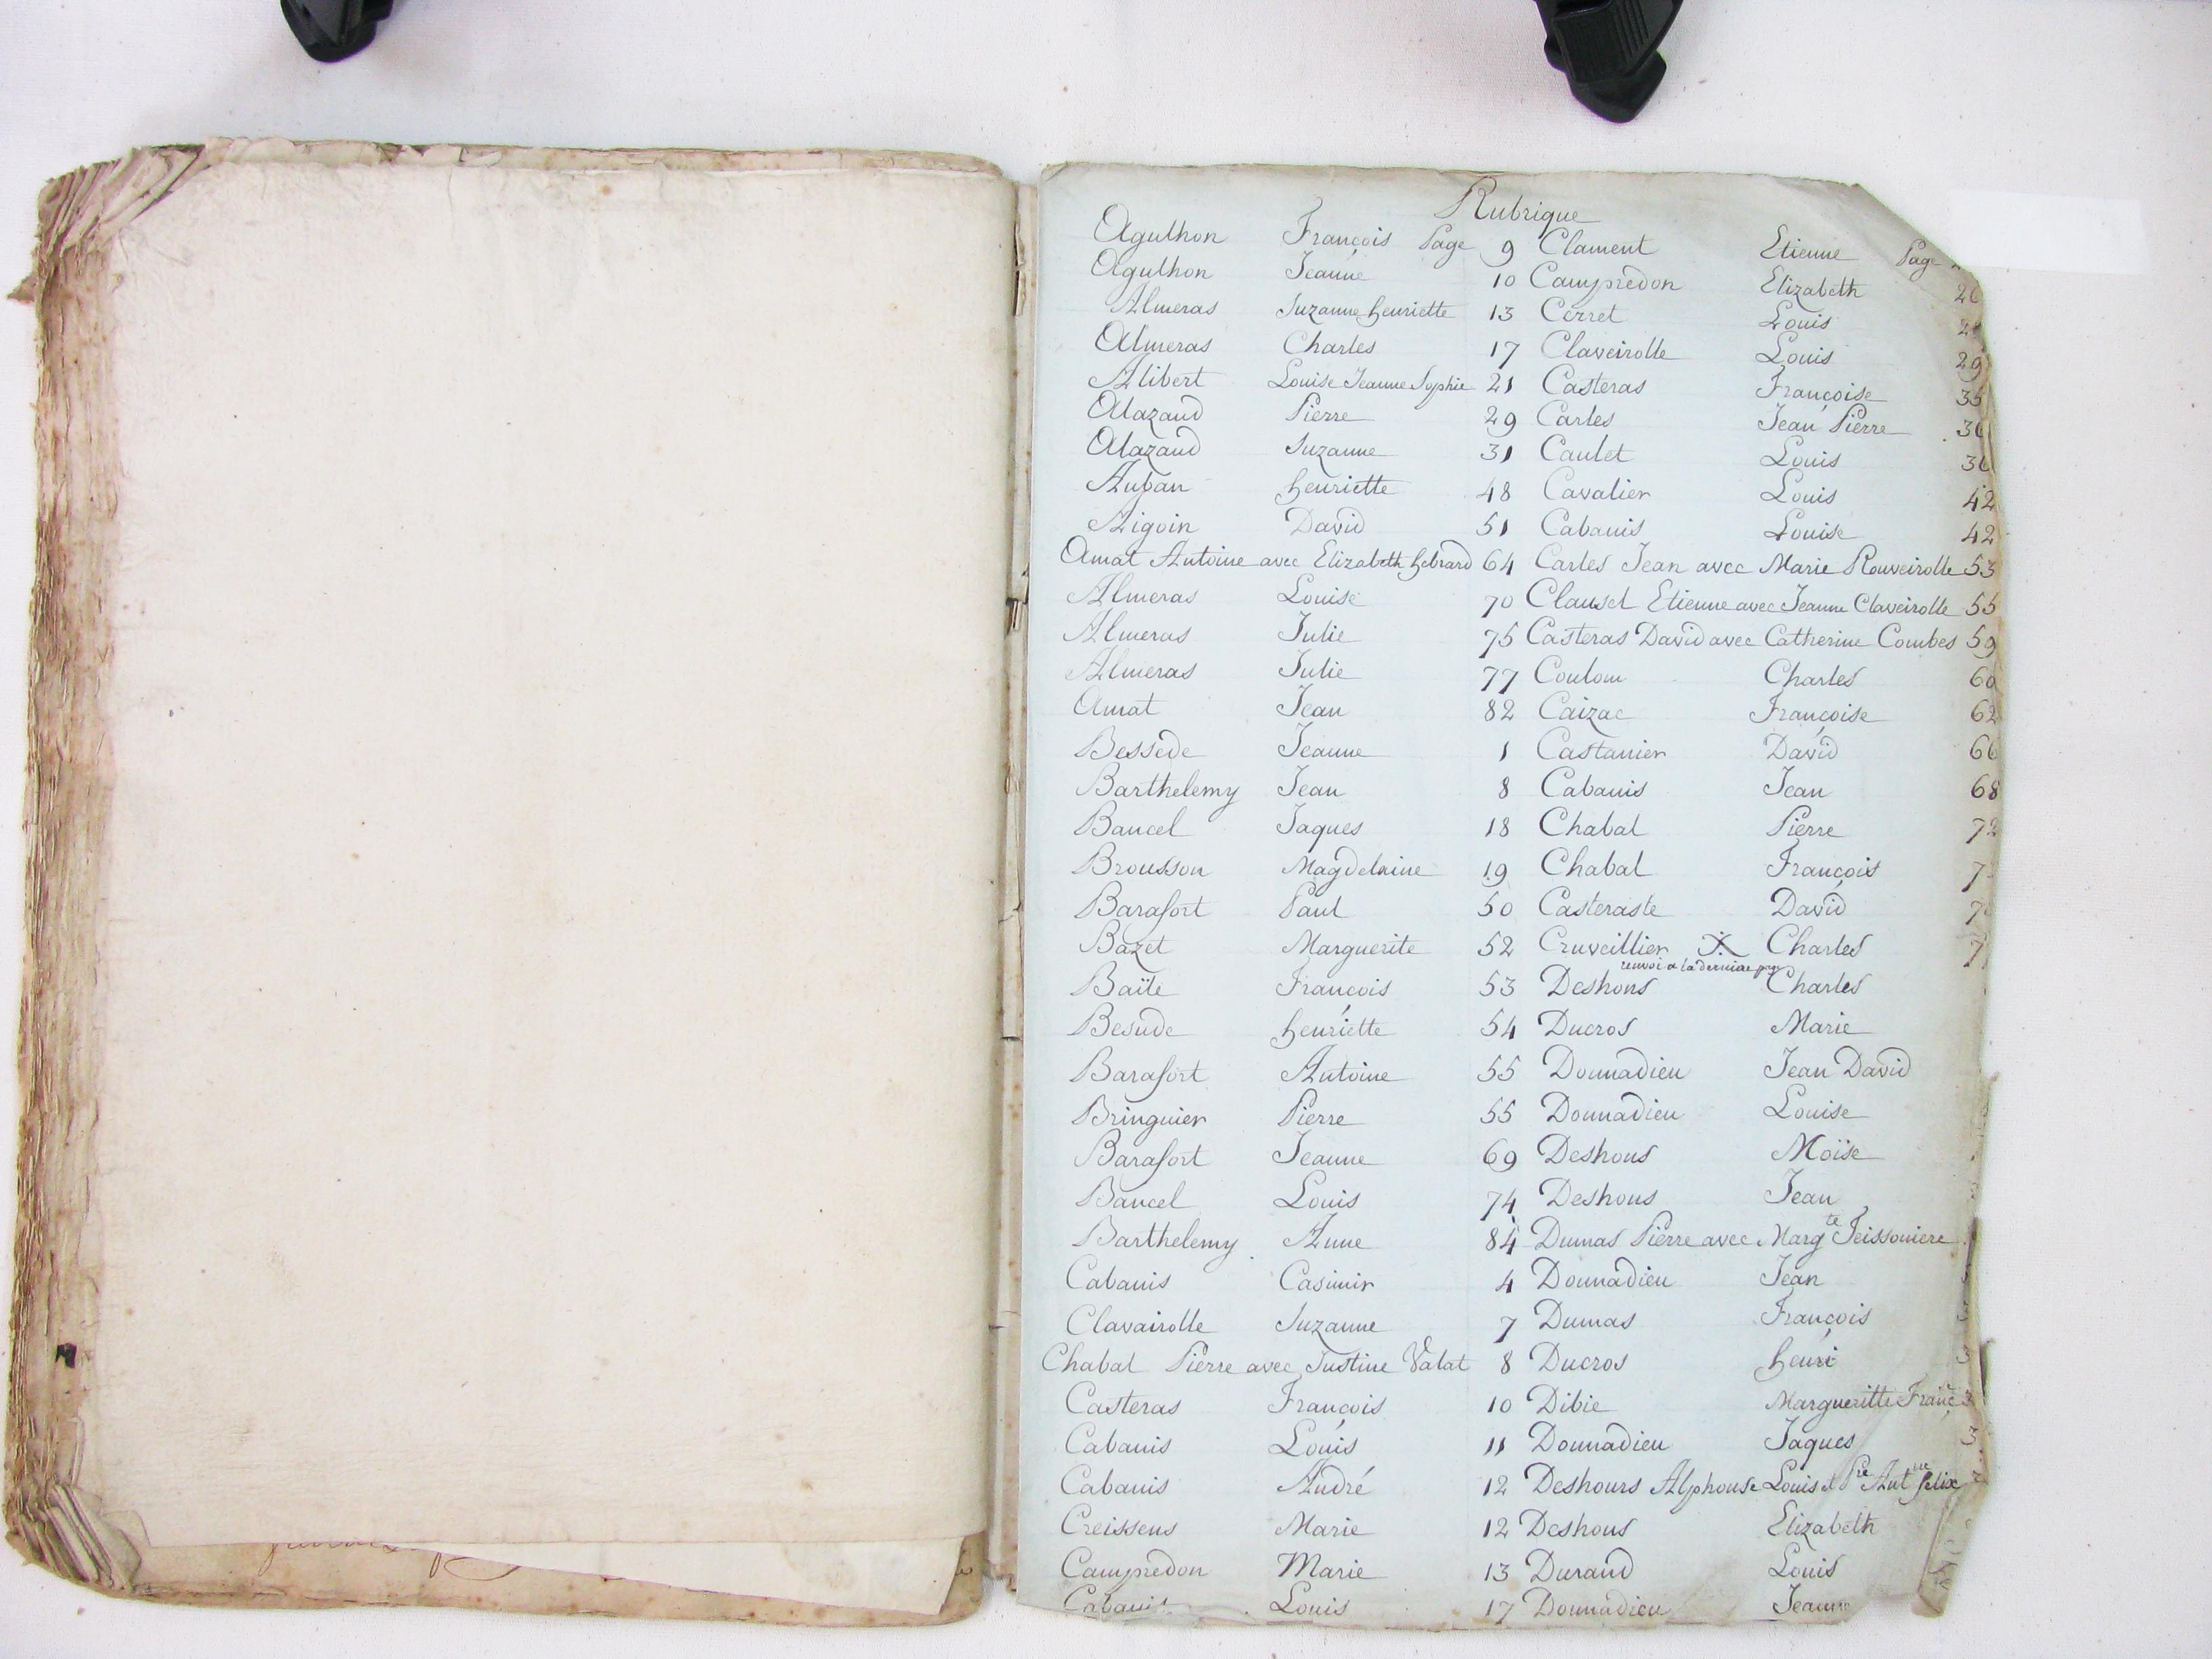 Rubrique
Agulhon François Page 9
Agulhon Jeanne 10
Almeras Suzanne henriette 13
Almeras Charles 17
Alibert Louise Jeanne Sophie 21
Alazaud Pierre 29
Alazaud Suzanne 31
Auban henriette 48
Aigoin David 51
Amat Antoine avec Elizabeth hebrard 64
Almeras Louise 70
Almeras Julie 75
Almeras Julie 77
Amat Jean 82
Bessede Jeanne 1
Barthelemy Jean 8
Bancel Jaques 18
Brousson Magdelaine 19
Barafort Paul 50
Bazet Marguerite 52
Baïle François 53
Besude henriette 54
Barafort Antoine 55
Bringuier Pierre 55
Barafort Jeanne 69
Bancel Louis 74
Barthelemy Anne 84
Cabanis Casimir 4
Clavairolle Suzanne 7
Chabal Pierre avec Justine Valat 8
Casteras François 10
Cabanis Louis 11
Cabanis André 12
Creissens Marie 12
Campredon Marie 13
Cabanis Louis 17
Clament Etienne Page
Campredon Elizabeth
Cerret Louis
Claveirolle Louis 29
Casteras Françoise 35
Carles Jean Pierre
Caulet Louis
Cavalier Louis 42
Cabanis Louise 42
Carles Jean avec Marie Rouveirolle 53
Clausel Etienne avec Jeanne Claveirolle 55
Casteras David avec Catherine Combes 59
Coulom Charles 60
Caizac Françoise 62
Castanier David 66
Cabanis Jean 68
Chabal Pierre 72
Chabal François
Casteraste David
Cruveillier Charles
renvoi a la derniere page
Deshons Charles
Ducros Marie
Donnadieu Jean David
Donnadieu Louise
Deshons Moïse
Deshons Jean
Dumas Pierre avec Marg te Teissoniere
Donnadieu Jean
Dumas François
Ducros henri
Dibie Margueritte Franç
Donnadieu Jaques
Deshours Alphonse Louis et Pre Antne felix
Deshons Elizabeth
Durand Louis
Donnadieu Jeanne